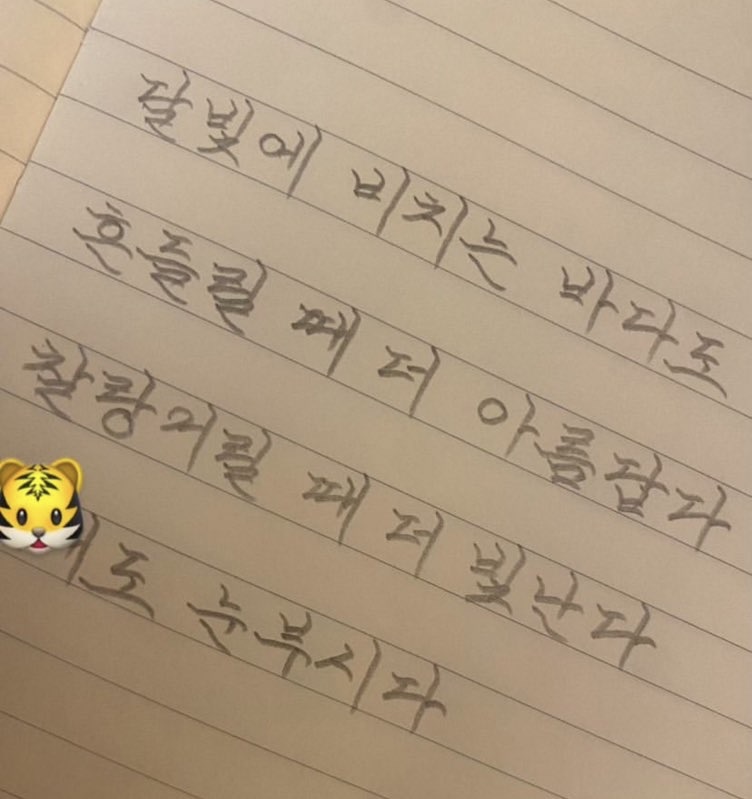 달빛에 비치는 바다도
흔들릴 때 더 아름답다
찰랑거릴 때 더 빛난다
눈부시다